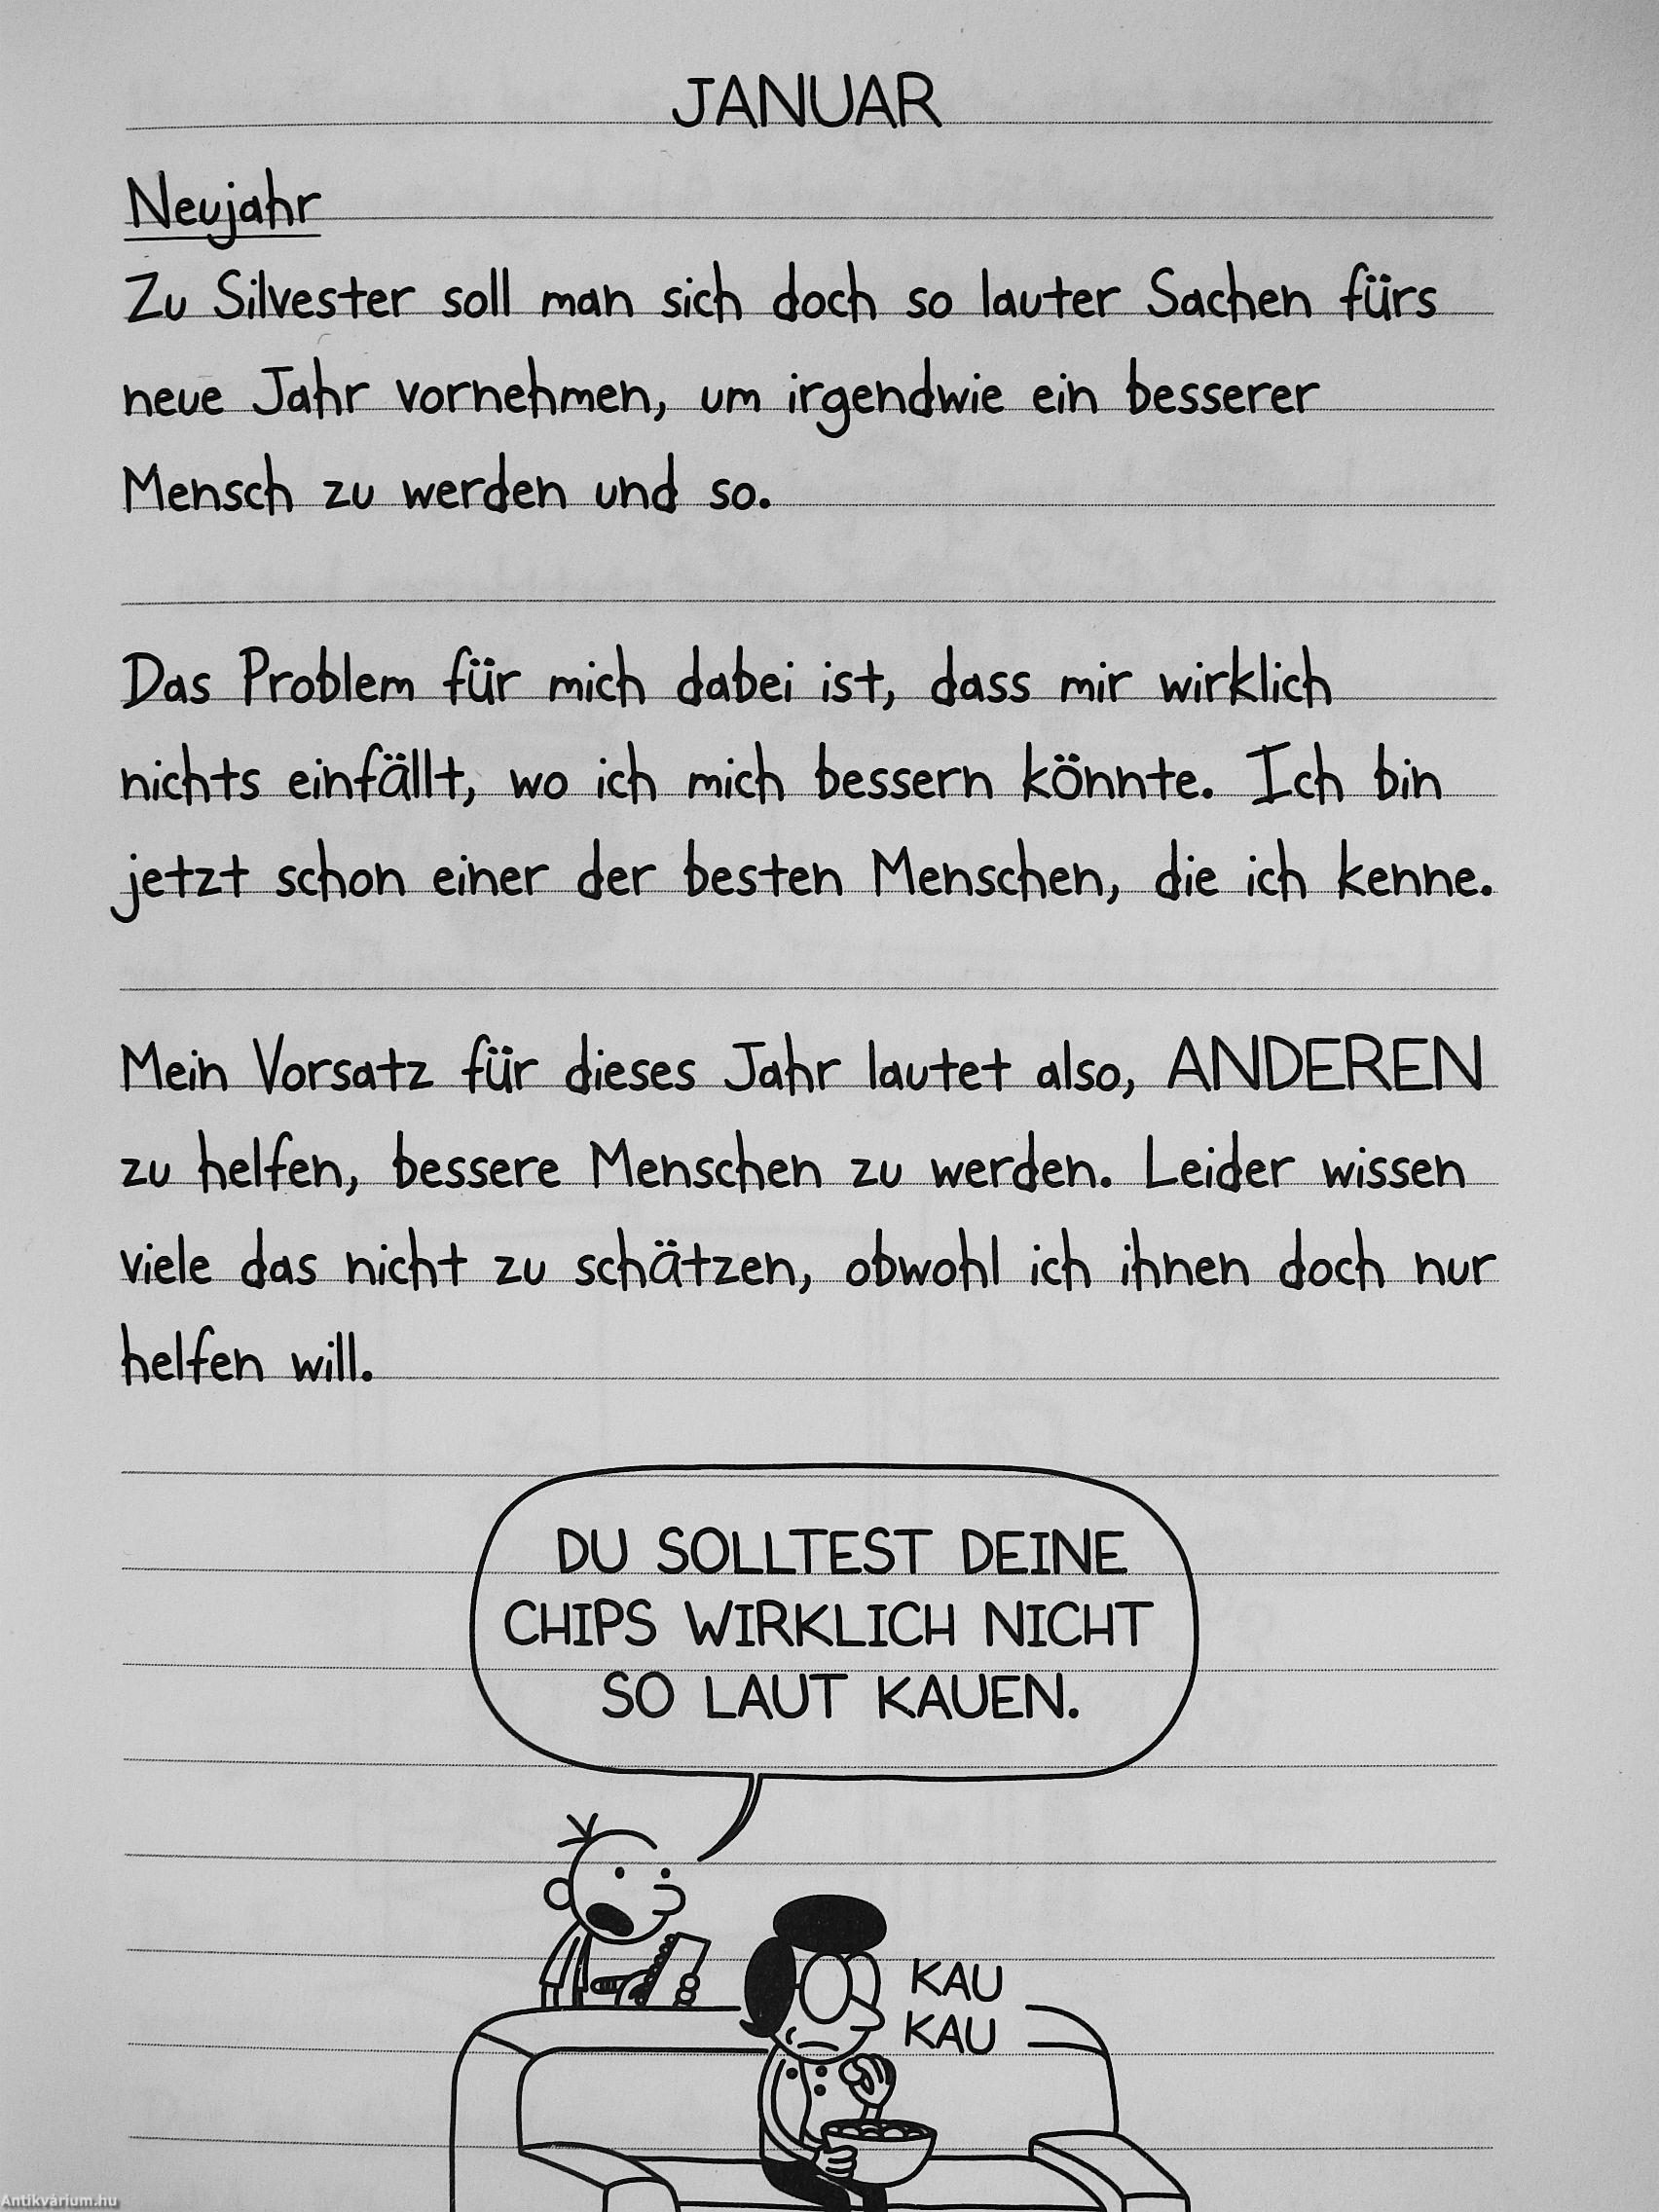 JANUAR
Neujahr
Zu Silvester soll man sich doch so lauter Sachen fürs
neue Jahr vornehmen, um irgendwie ein besserer
Mensch zu werden und so.
Das Problem für mich dabei ist, dass mir wirklich
nichts einfällt, wo ich mich bessern könnte. Ich bin
jetzt schon einer der besten Menschen, die ich kenne.
Mein Vorsatz für dieses Jahr lautet also, ANDEREN
zu helfen, bessere Menschen zu werden. Leider wissen
viele das nicht zu schätzen, obwohl ich ihnen doch nur
helfen will.
DU SOLLTEST DEINE
CHIPS WIRKLICH NICHT
SO LAUT KAUEN.
KAU
KAU
Antikvárium.hu